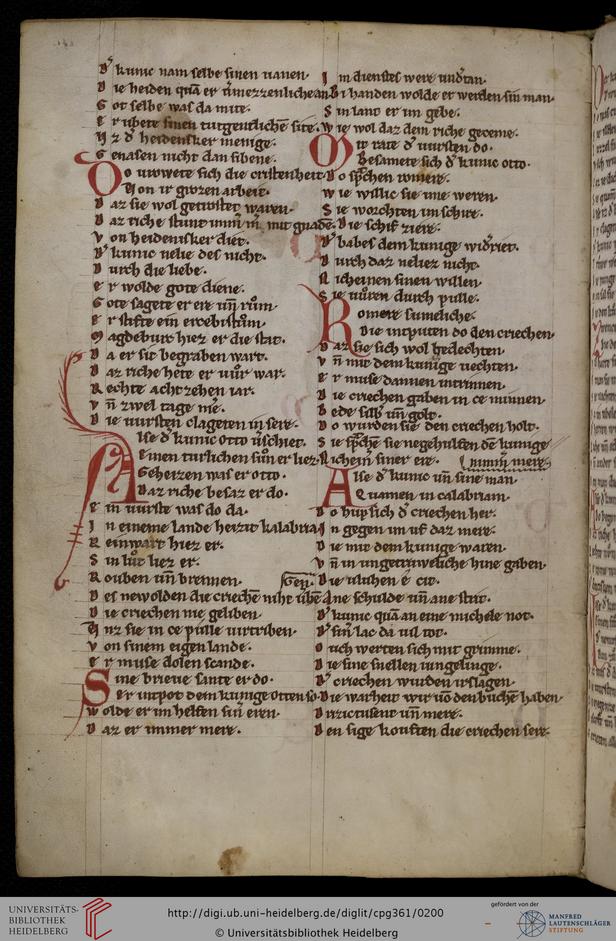 D' kunic nam selbe sinen uanen·
D ie heiden quā er v̄mezzenlichen an·
G ot selbe was da mite·
E r ubete sinen turgentlichē site·
Vz d' heidensker menige·
G enasen nicht dan sibene·
Do urowete sich die cristenheit
uon ir grozen arbeit·
D az sie wol getrostet waren·
D az riche stunt im̄ m̄ mit gnadē·
V on heidenisker diet·
D' kunic nelie des nicht·
D urch die liebe·
E r wolde gote diene·
G ote sagete er ere un̄ rům·
E r stifte ein ercebistům·
M agdeburc hiez er die stat·
D a er sit begraben wart·
D az riche hete er uůr war·
R echte achtzehen iar·
V n̄ zwelf tage me·
D ie uursten clageten in sere·
Alse d' kunic otto v̄schiet·
Einen turlichen sůn er liez·
Geheizen was er otto·
Daz riche besaz er do·
E in uurste was do da·
I n eineme lande heizit kalabria
R einwart hiez er·
S in lůt liez er·
R ouben un̄ brennen·
D es newolden die criechē niht ubē
D ie criechen nie geliben·
Vnz sie in ce pulle uirtriben·
V on sinem eigen lande·
E r muse dolen scande·
Sine brieue sante er do·
Er intpot dem kunige otten so·
W olde er im helfen sin̄ eren·
D az er immer mere·
I m dienstes were und'tan·
Bi handen wolde er werden sin̄ man·
S in lant er im gebe·
W ie wol daz dem riche geceme·
Mit rate d' uursten do·
Besamete sich d' kunic otto·
D o sp̄chen romere·
W ie willic sie ime weren·
S ie worchten im schire·
D ie schif ziere·
D' babes dem kunige wid'riet·
D urch daz neliez nicht·
N icheinen sinen willen
S ie uůren durch pulle·
Romere sumeliche·
Die intputen do den criechen·
D az sie sich wol gedechten·
V n̄ mit dem kunige uechten·
E r muse dannen intrinnen·
D ie criechen gaben in ce minnen·
B ede silb' un̄ golt·
D o wurden sie den criechen holt·
S ie sp̄chē sie negehulfen dē kunige
N icheim̄ siner ere·
nim̄m̄ mere·
Alse d' kunic un̄ sine man·
Quamen in calabriam·
D o hůp sich d' criechen her·
I n gegen im uf daz mere·
D ie mit dem kunige waren·
V n̄ in ungetruweliche hine gaben·
D ie uluhen e cit·
Ane schulde un̄ ane strit·
D' kunic quā an eine michele not·
D' sin̄ lac da uil tot·
O uch werten sich mit grimme·
D ie sine snellen iungelinge·
D' criechen wurden irslagen·
D ie warheit wir uō den bůchē haben·
V nzictusent un̄ mere·
D en sige kouften die criechen sere·
UNIVERSITÄTS-
BIBLIOTHEK
HEIDELBERG
http://digi.ub.uni-heidelberg.de/diglit/cpg361/0200
© Universitätsbibliothek Heidelberg
gefördert von der
MANFRED
LAUTENSCHLÄGER
STIFTUNG